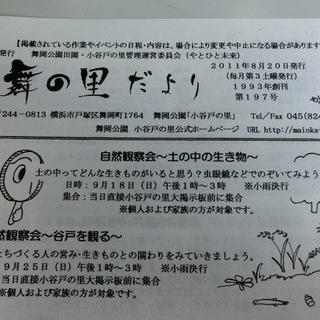 【掲載されている作業やイベントの日程・内容は、場合により変更や中止になる場合があります
発行
舞岡公園田園・小谷戸の里管理運営委員会（やとひと未来）
2011年8月20日発行
（毎月第3土曜発行）
1993年創刊
第197号
舞の里だより
244-0813 横浜市戸塚区舞岡町1764 舞岡公園「小谷戸の里」 Tel/Fax 045(824
舞岡公園 小谷戸の里公式ホームページ URL http://maioka-
自然観察会～土の中の生き物～
土の中ってどんな生きものがいると思う？虫眼鏡などでのぞいてみよう
日時：9月18日（日）午後1時～3時 ※小雨決行
集合：当日直接小谷戸の里大掲示板前に集合
※個人および家族の方が対象です。
然観察会～谷戸を観る～
たちづくる人の営み・生きものとの関わりをみていきましょう。
9月25日（日）午後1時～3時 ※小雨決行
当日直接小谷戸の里大掲示板前に集合
※個人および家族の方が対象です。